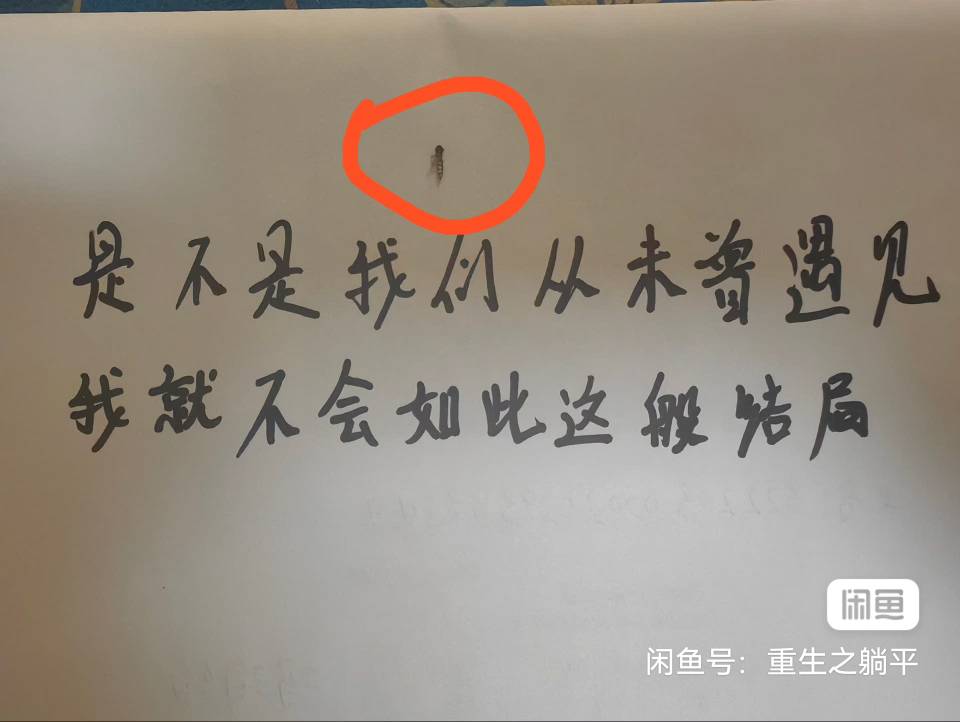 是不是我们从未曾遇见
我就不会如此这般结局
闲鱼
闲鱼号：重生之躺平